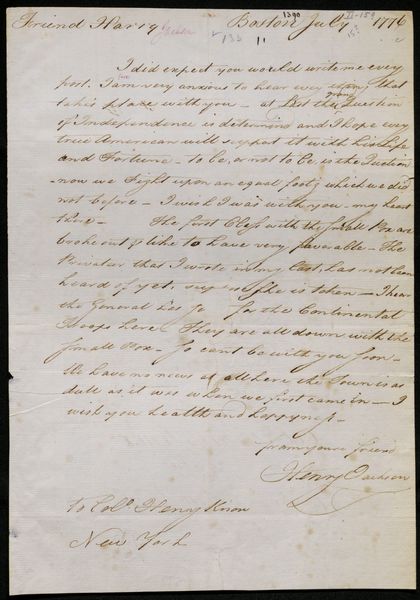 Friend Harry Boston July 1776
I did expect you would write me every
post. I am very anxious to hear every thing that
takes place with you - at last the Question
of Independence is determind and I hope every
true American will support it with his Life
and Fortune - to be, or not to be, is the Question
now we Fight upon an equal footg which we did
not before - I wish I was with you - my heart
there - The first Class with the Small Pox are
broke out & like to have very favorable - The
Privater that I wrote in my last, has not been
heard of yet. suppose she is taken - I hear
the General has for the Continental
Troops here. They are all down with the
Small Pox - so cant be with you soon -
We have no news at all here the Town is as
dull as it was when we first came in - I
wish you health and happyness -
from youre friend
Henry Jackson
To Colo. Henry Knox
New York